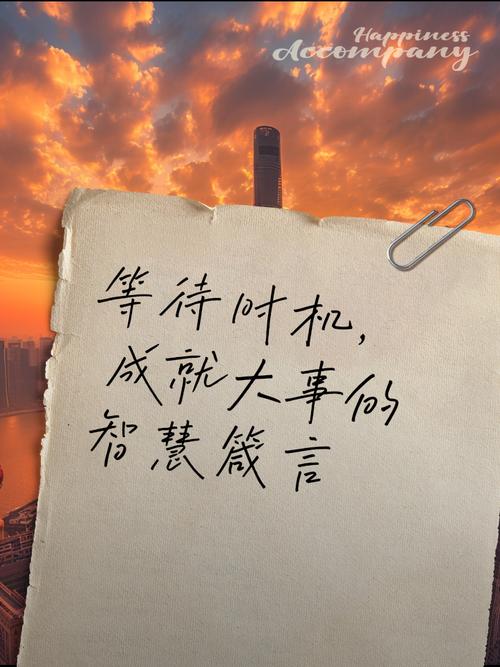 Happiness
Accompany
等待时机,
成就大事的
智慧箴言